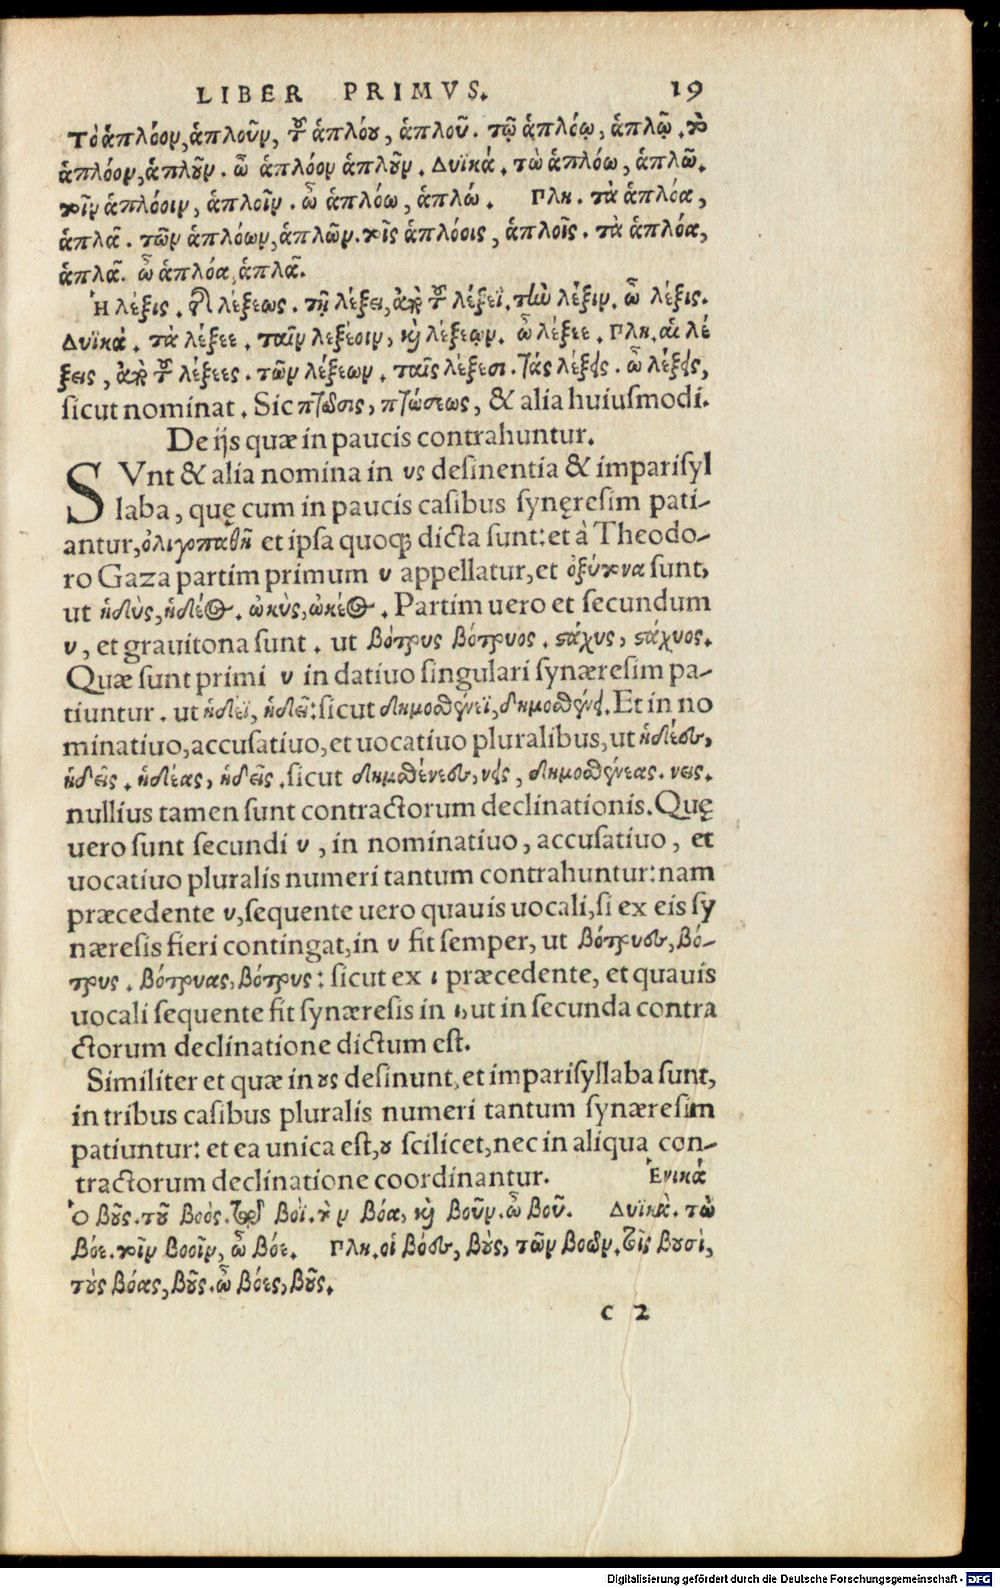 LIBER PRIMVS. 19
Τὸ ἁπλόον, ἁπλοῦν, τοῦ ἁπλόου, ἁπλοῦ. τῷ ἁπλόῳ, ἁπλῷ. τὸ
ἁπλόον, ἁπλοῦν. ὦ ἁπλόον ἁπλοῦν. Δυϊκά. τὼ ἁπλόω, ἁπλῶ.
τοῖν ἁπλόοιν, ἁπλοῖν. ὦ ἁπλόω, ἁπλώ. Πλη. τὰ ἁπλόα,
ἁπλᾶ. τῶν ἁπλόων, ἁπλῶν. τοῖς ἁπλόοις, ἁπλοῖς. τὰ ἁπλόα,
ἁπλᾶ. ὦ ἁπλόα, ἁπλᾶ.
Ἡ λέξις. τῆς λέξεως. τῇ λέξει, ἀπὸ τοῦ λέξεϊ. τὴν λέξιν. ὦ λέξις.
Δυϊκά. τὰ λέξεε. ταῖν λεξέοιν, καὶ λέξεῳν. ὦ λέξεε. Πλη. αἱ λέ
ξεις, ἀπὸ τοῦ λέξεες. τῶν λέξεων. ταῖς λέξεσι. τὰς λέξεις. ὦ λέξεις,
sicut nominat. Sic πτῶσις, πτώσεως, & alia huiuſmodi.
De ijs quæ in paucis contrahuntur.
SVnt & alia nomina in υς deſinentia & impariſyl
laba, quę cum in paucis caſibus ſynęreſim pati-
antur, ὀλιγοπαθῆ et ipſa quoq; dicta ſunt: et à Theodo-
ro Gaza partim primum υ appellatur, et ὀξύτονα ſunt,
ut ἡδὺς, ἡδέος. ὠκὺς, ὠκέος. Partim uero et ſecundum
υ, et grauitona ſunt. ut βότρυς βότρυος. στάχυς, στάχυος.
Quæ ſunt primi υ in datiuo ſingulari ſynæreſim pa-
tiuntur. ut ἡδέϊ, ἡδεῖ: ſicut δημοσθένεϊ, δημοσθένει. Et in no
minatiuo, accuſatiuo, et uocatiuo pluralibus, ut ἡδέες,
ἡδεῖς. ἡδέας, ἡδεῖς. ſicut δημοσθένεες, νεις, δημοσθένεας. νεις.
nullius tamen ſunt contractorum declinationis. Quę
uero ſunt ſecundi υ, in nominatiuo, accuſatiuo, et
uocatiuo pluralis numeri tantum contrahuntur: nam
præcedente υ, ſequente uero quauis uocali, ſi ex eis ſy
næreſis fieri contingat, in υ fit ſemper, ut βότρυες, βό-
τρυς. βότρυας, βότρυς: ſicut ex ι præcedente, et quauis
uocali ſequente fit ſynæreſis in ι, ut in ſecunda contra
ctorum declinatione dictum eſt.
Similiter et quæ in ους deſinunt, et impariſyllaba ſunt,
in tribus caſibus pluralis numeri tantum ſynæreſim
patiuntur: et ea unica eſt, ου ſcilicet, nec in aliqua con-
tractorum declinatione coordinantur. Ἑνικά
Ὁ βοῦς. τοῦ βοός. τῷ βοΐ. τὸν βόα, καὶ βοῦν. ὦ βοῦ. Δυϊκὰ. τὼ
βόε. τοῖν βοοῖν, ὦ βόε. Πλη. οἱ βόες, βοὺς, τῶν βοῶν. τοῖς βουσὶ,
τοὺς βόας, βοῦς. ὦ βόες, βοῦς.
c 2
Digitalisierung gefördert durch die Deutsche Forschungsgemeinschaft - DFG